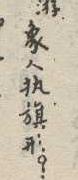 游
象人执旗形。